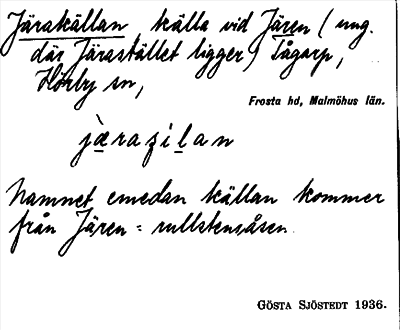 Järakällan källa vid Jären (ung.
där Järastället ligger) Tågarp,
Hörby sn,
Frosta hd, Malmöhus län.
jæraʂilan
Namnet emedan källan kommer
från Jären = rullstensåsen.
GÖSTA SJÖSTEDT 1936.